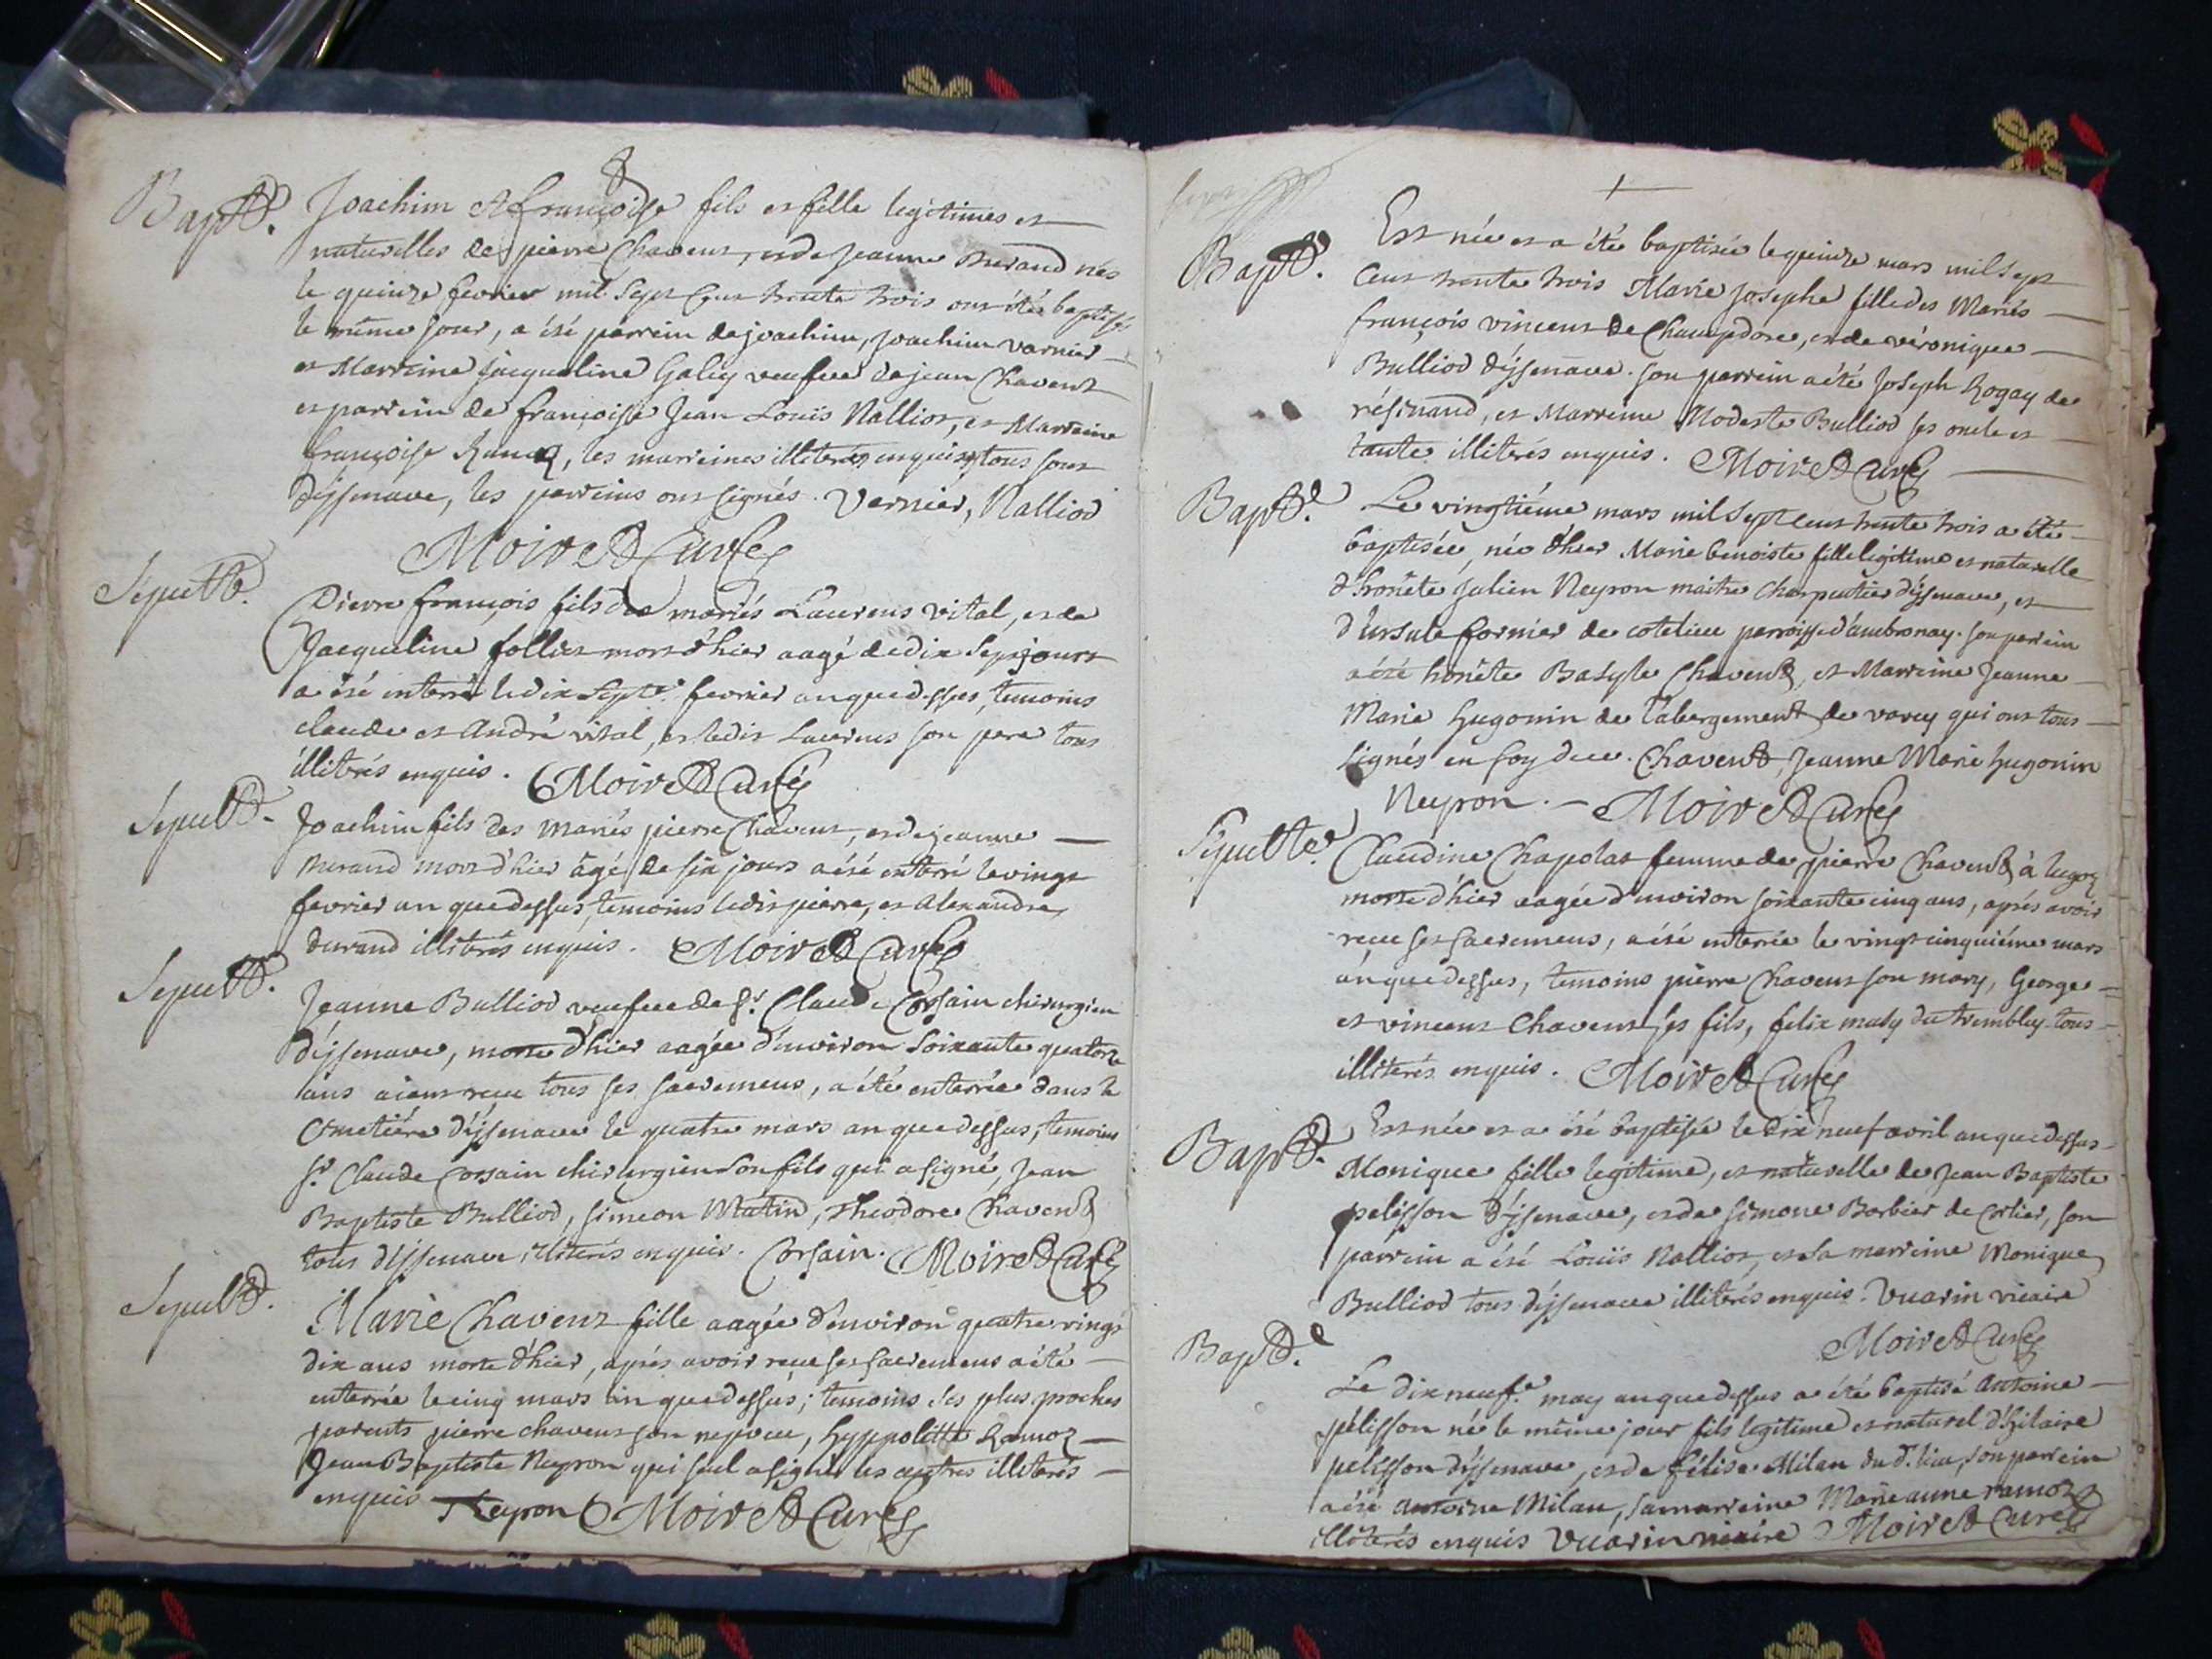 Bapt.
Joachim et françoise fils et fille legitimes et
naturelles de pierre Chavent, et de Jeanne Durand nés
le quinze fevrier mil sept cent trente trois ont étés baptisés
le même jour, a été parrein de joachim, joachim varnier
et Marreine jacqueline Galey veufve de jean Chavent
et parrein de françoise Jean Louis Nalliot, et Marreine
françoise, les marreines illiterées enquises tous sont
d'jsenave, les parreins ont signés. Vernier, Nalliod
Moiret Curé
Sepult.
Pierre françois fils des mariés Laurens vital, et de
Jacqueline follier mort d'hier aagé de dix sept jours
a été enterré le dix septe. fevrier an que dessus, temoins
claude et André vital, et ledit Laurens son pere tous
illiterés enquis. Moiret Curé
Sepult.
Joachim fils des mariés pierre Chavent, et de jeanne
Durand mort d'hier âgé de six jours a été enterré le vingt
fevrier an que dessus, temoins ledit pierre, et Alexandre
durand illiterés enquis. Moiret Curé
Sepult.
Jeanne Bulliod veufve de Sr. Claude Corsain chirurgien
d'jsenave, morte d'hier aagée d'environ soixante quatorze
ans aient reçu tous ses sacremens, a été enterrée dans le
Cimetière d'jsenave le quatre mars an que dessus, temoins
Sr. Claude Corsain chirurgien son fils qui a signé, Jean
Baptiste Bulliod, simeon Matin, Theodore Chavent
tous d'jssenave illiterés enquis. Corsain. Moiret Curé
Sepult.
Marie Chavent fille aagée d'environ quatre vingt
dix ans morte d'hier, aprés avoir reçu ses sacremens a été
enterrée le cinq mars an que dessus; temoins ses plus proches
parents pierre chavent son nepveu, hyppolitte Ramoz
Jean Baptiste Neyron qui seul a signé les autres illiterés
enquis Neyron Moiret Curé
Bapt.
Est née et a été baptisée le quinze mars mil sept
cent trente trois Marie Josephe fille des Mariés
françois vincent de Champdore, et de véronique
Bulliod d'jsenave. son parrein a été Joseph Rogay de
résinand, et Marreine Modeste Bulliod ses oncle et
tante illiterés enquis. Moiret Curé
Bapt.
Le vingtiéme mars mil sept cent trente trois a été
baptisée, née d'hier Marie benoiste fille legitime et naturelle
d'honête Julien Neyron maitre charpentier d'jsenave, et
d'Ursule fornier de cotelieu parroisse d'ambronay. son parrein
a été honête Basyle Chavent, et Marreine Jeanne
Marie hugonin de l'abergement de varey qui ont tous
signés en foy de ce. Chavent, Jeanne Marie hugonin
Neyron. Moiret Curé
Sepulte.
Claudine Chapolat femme de pierre Chavent à
morte d'hier aagée d'environ soixante cinq ans, aprés avoir
receu ses sacremens, a été enterrée le vingt cinquiéme mars
an que dessus, temoins pierre Chavent son mary, George
et vincent Chavent ses fils, felix maty du tremblay tous
illiterés enquis. Moiret Curé
Bapt.
Est née et a été baptisée le dix neuf avril an que dessus
Monique fille legitime, et naturelle de Jean Baptiste
pelisson d'jsenave, et de simone Barbier de Corlier, son
parrein a été Louis Nalliot, et sa marreine Monique
Bulliod tous d'jssenave illiterés enquis. Vuarin vicaire
Moiret Curé
Bapt.
Le dix neufe. may an que dessus a été baptisé Antoine
pélisson né le même jour fils legitime et naturel d'hilaire
pelisson d'jssenave, et de félise Milan du d. lieu, son parrein
a été Antoine Milan, sa marreine Marie anne ramoz
illiterés enquis Vuarin vicaire Moiret Curé